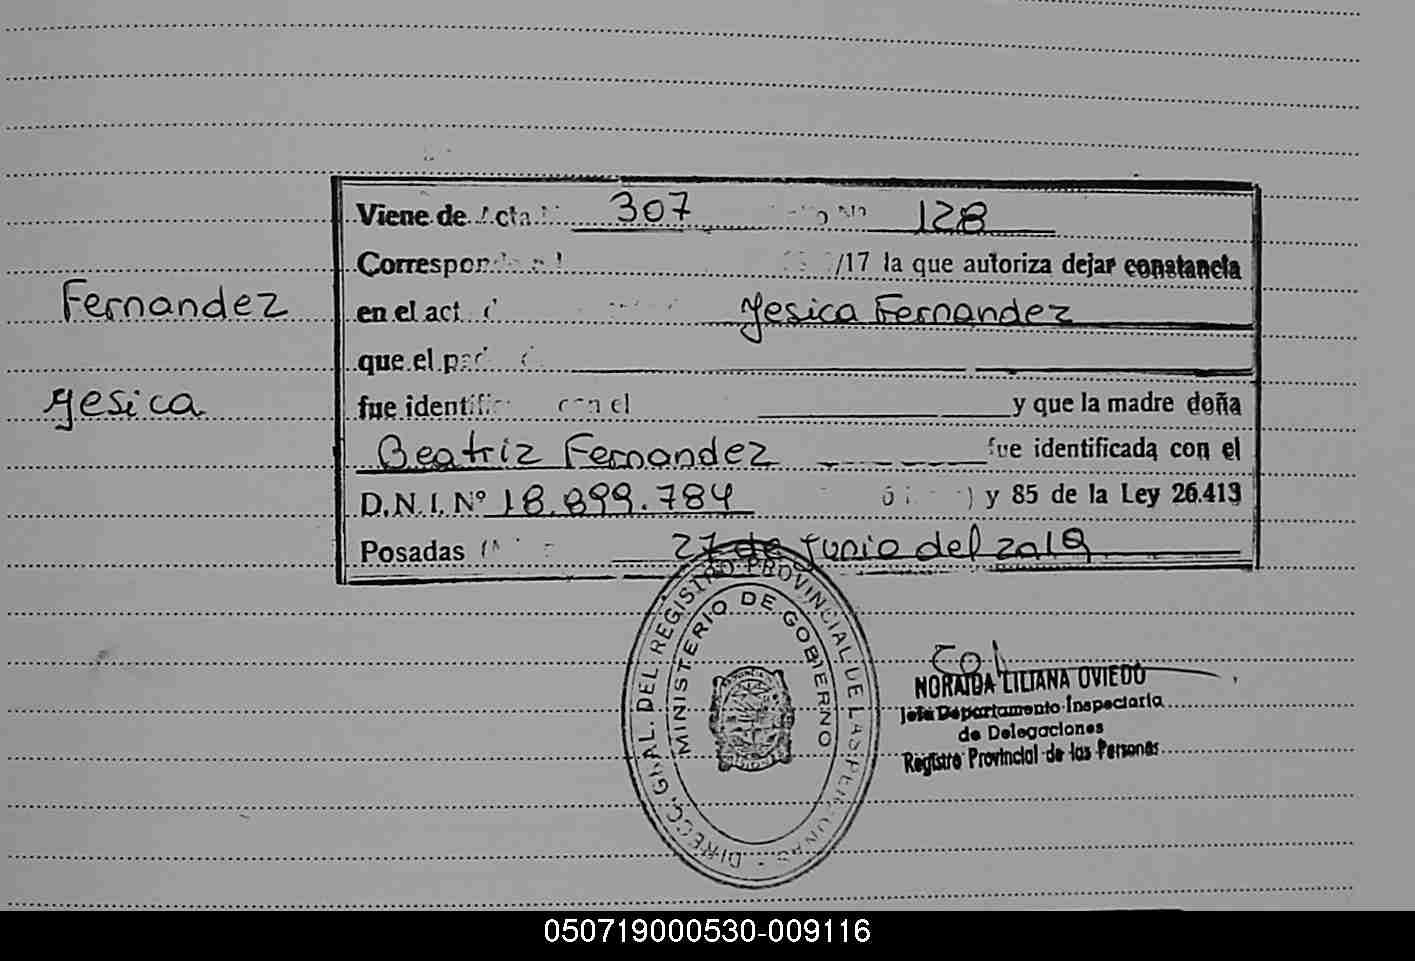 Viene de Acta 307 128
Correspon /17 la que autoriza dejar constancia
Fernandez
en el act Yesica Fernandez
que el
Yesica
fue identifi con el y que la madre doña
Beatriz Fernandez fue identificada con el
D.N.I. Nº 18.899.784 ) y 85 de la Ley 26.413
Posadas 27 de Junio del 2019
DIRECC. GRAL. DEL REGISTRO PROVINCIAL DE LAS PERSONAS
MINISTERIO DE GOBIERNO
NORAIDA LILIANA OVIEDO
Jefa Departamento Inspectoría
de Delegaciones
Registro Provincial de las Personas
050719000530-009116